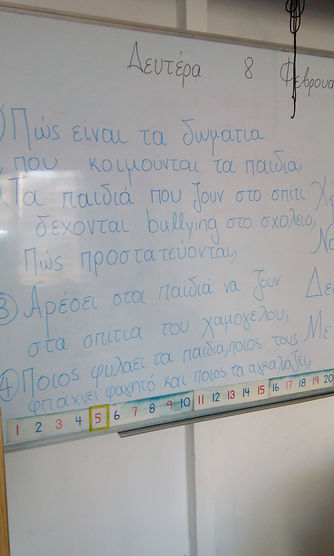 Δευτέρα 8 Φεβρουα
) Πώς είναι τα δωμάτια
που κοιμούνται τα παιδιά;
Τα παιδιά που ζουν στο σπίτι Χ
δεχονται bullying στο σχολείο;
Πώς προστατεύονται;
③ Αρέσει στα παιδιά να ζουν
στα σπίτια του χαμόγελου;
④ Ποιος φυλάει τα παιδιά, ποιος τους
φτιάχνει φαγητό και ποιος τα αγκαλιάζει;
1 2 3 4 5 6 7 8 9 10 11 12 13 14 15 16 17 18 19 20